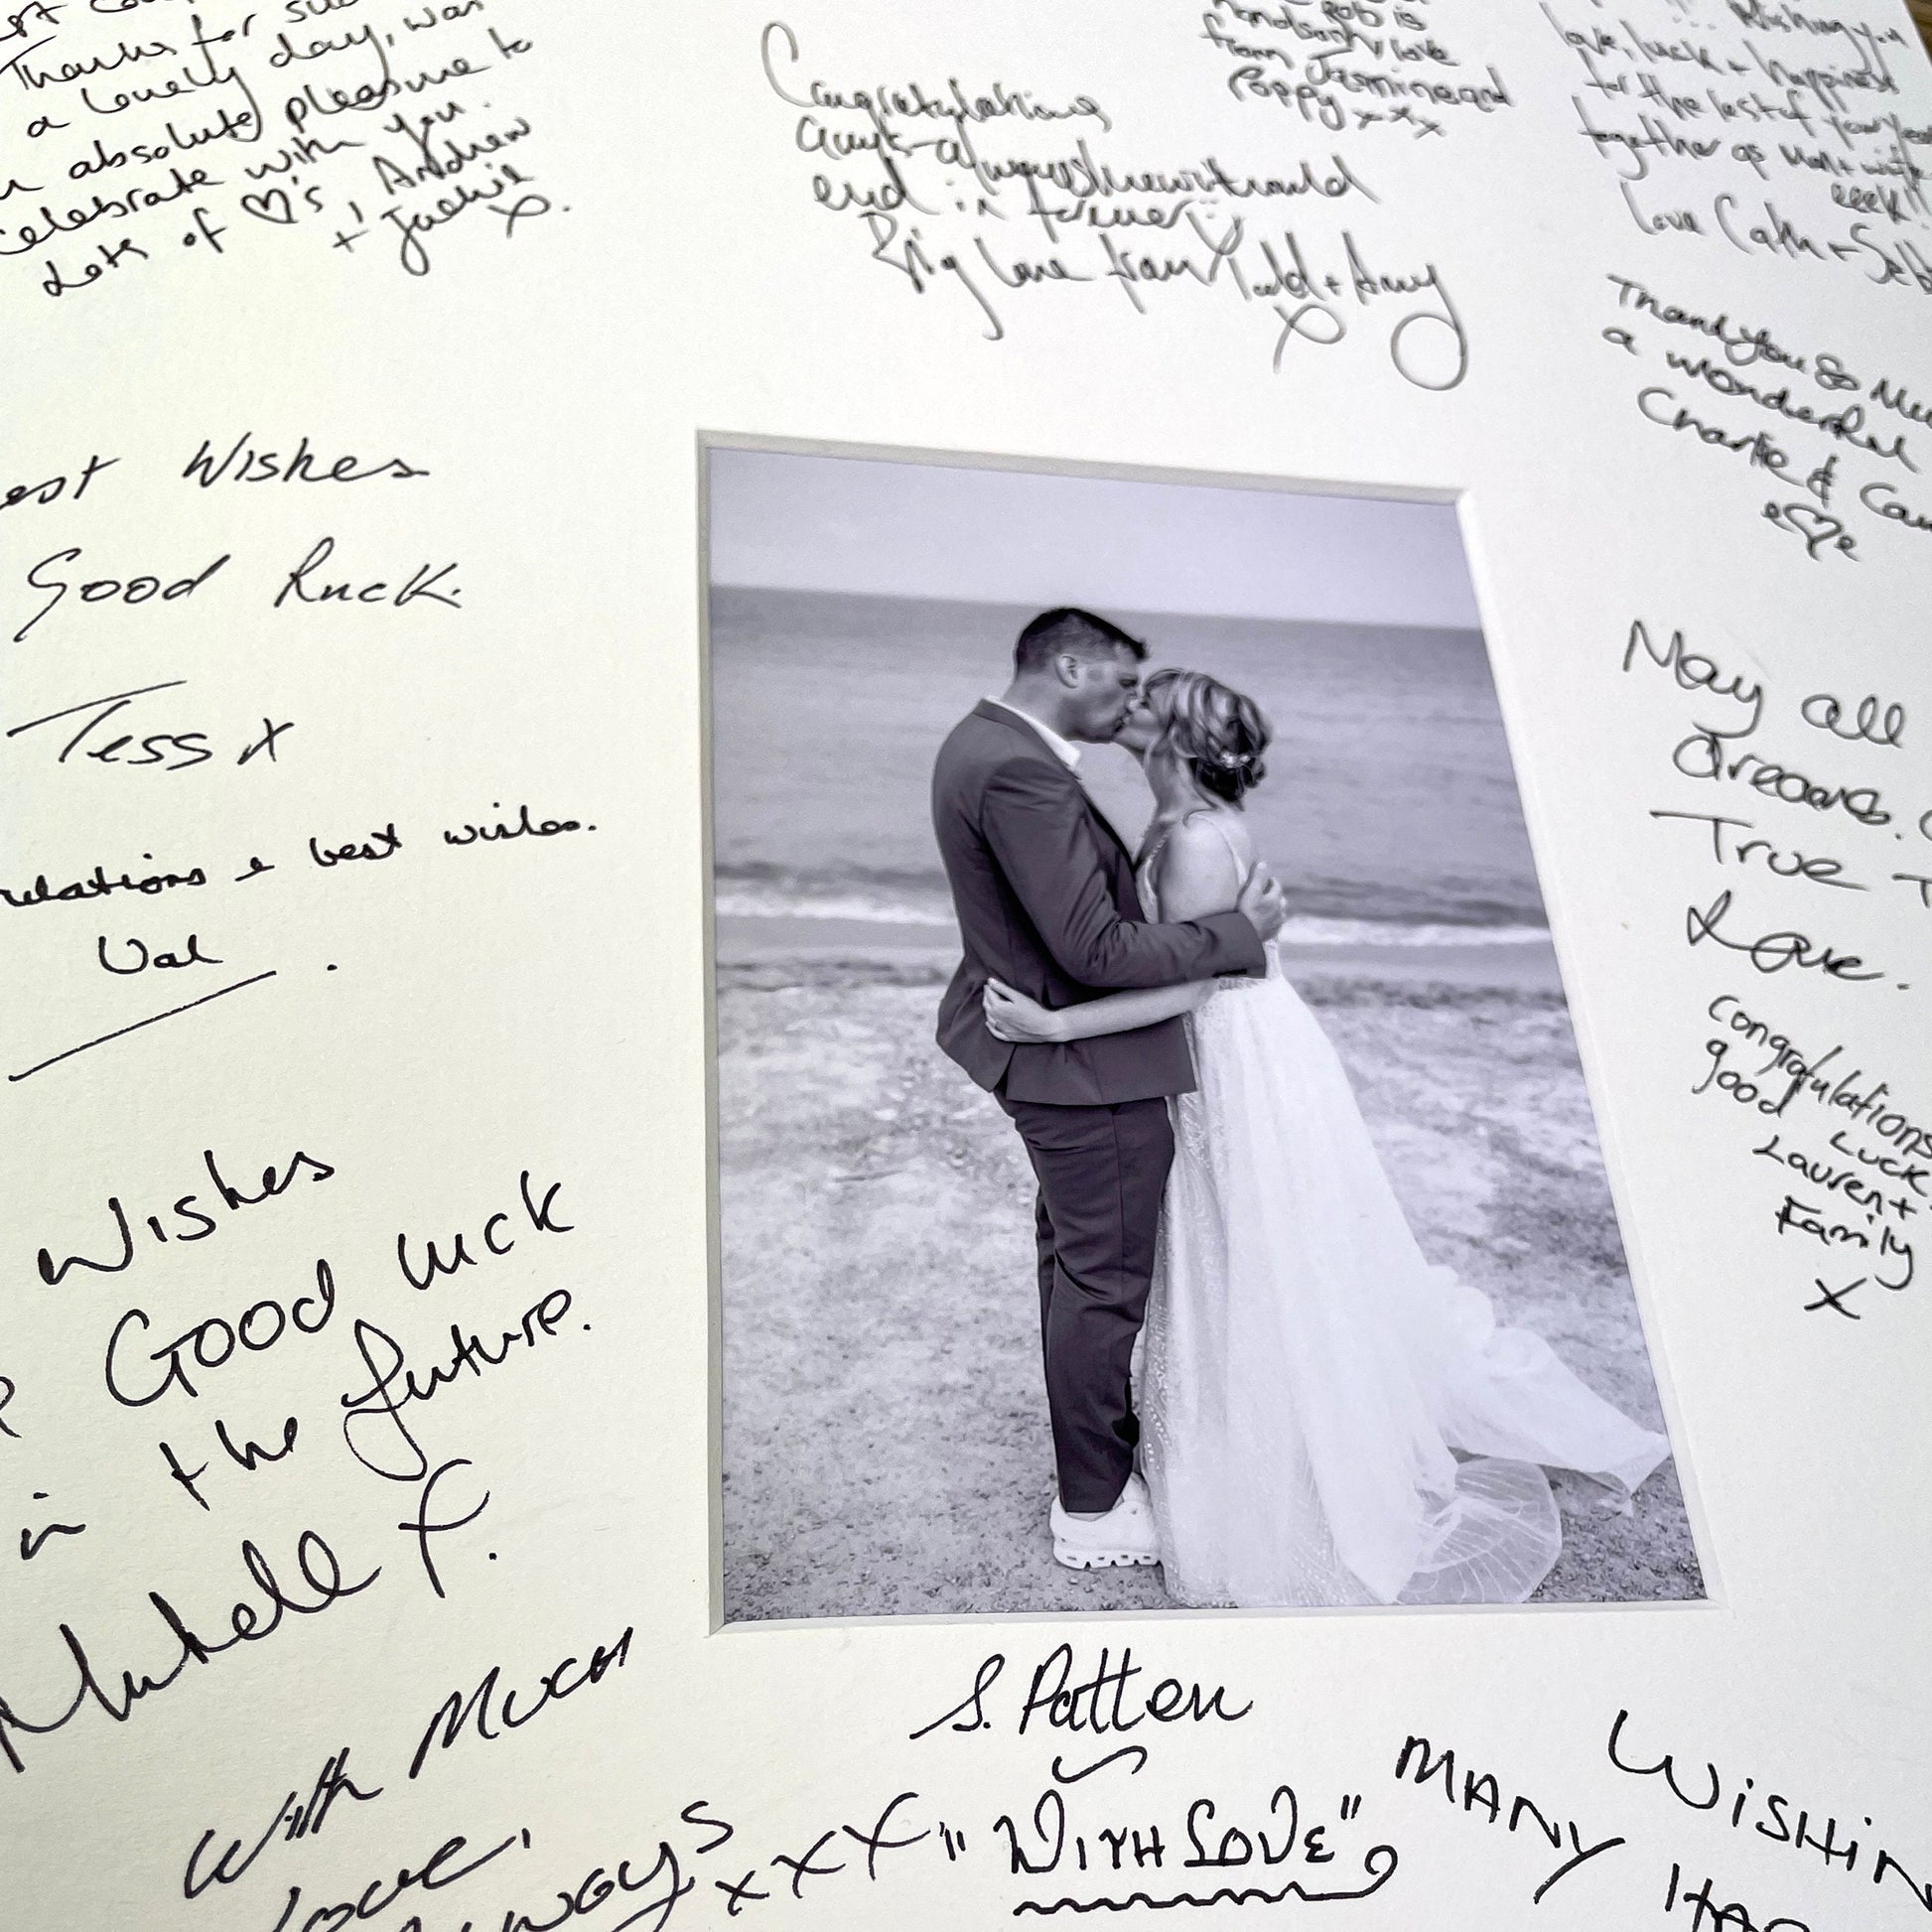 Thanks for
a lovely day, was
absolute pleasure to
celebrate with you.
Lots of ♡'s Andrew
+ Jackie
x.
Congratulations
end in
Big love from Todd + Amy
x
from Jasmine and
Poppy xxx
Wishing you
love, luck + happiness
for the rest of your
together as
eeek!!
love Cath +
Thank you so
a wonderful
Charlie &
♡
est Wishes
Good Luck.
Tess x
ulations & best wishes.
Val
May all
Dreams.
True
Love.
Congratulations
good luck
Lauren +
Family
X
Wishes
Good luck
in the future.
X.
S. Patten
With Much
Love,
ways
xxX "WITH LOVE"
MANY
WiSHiN